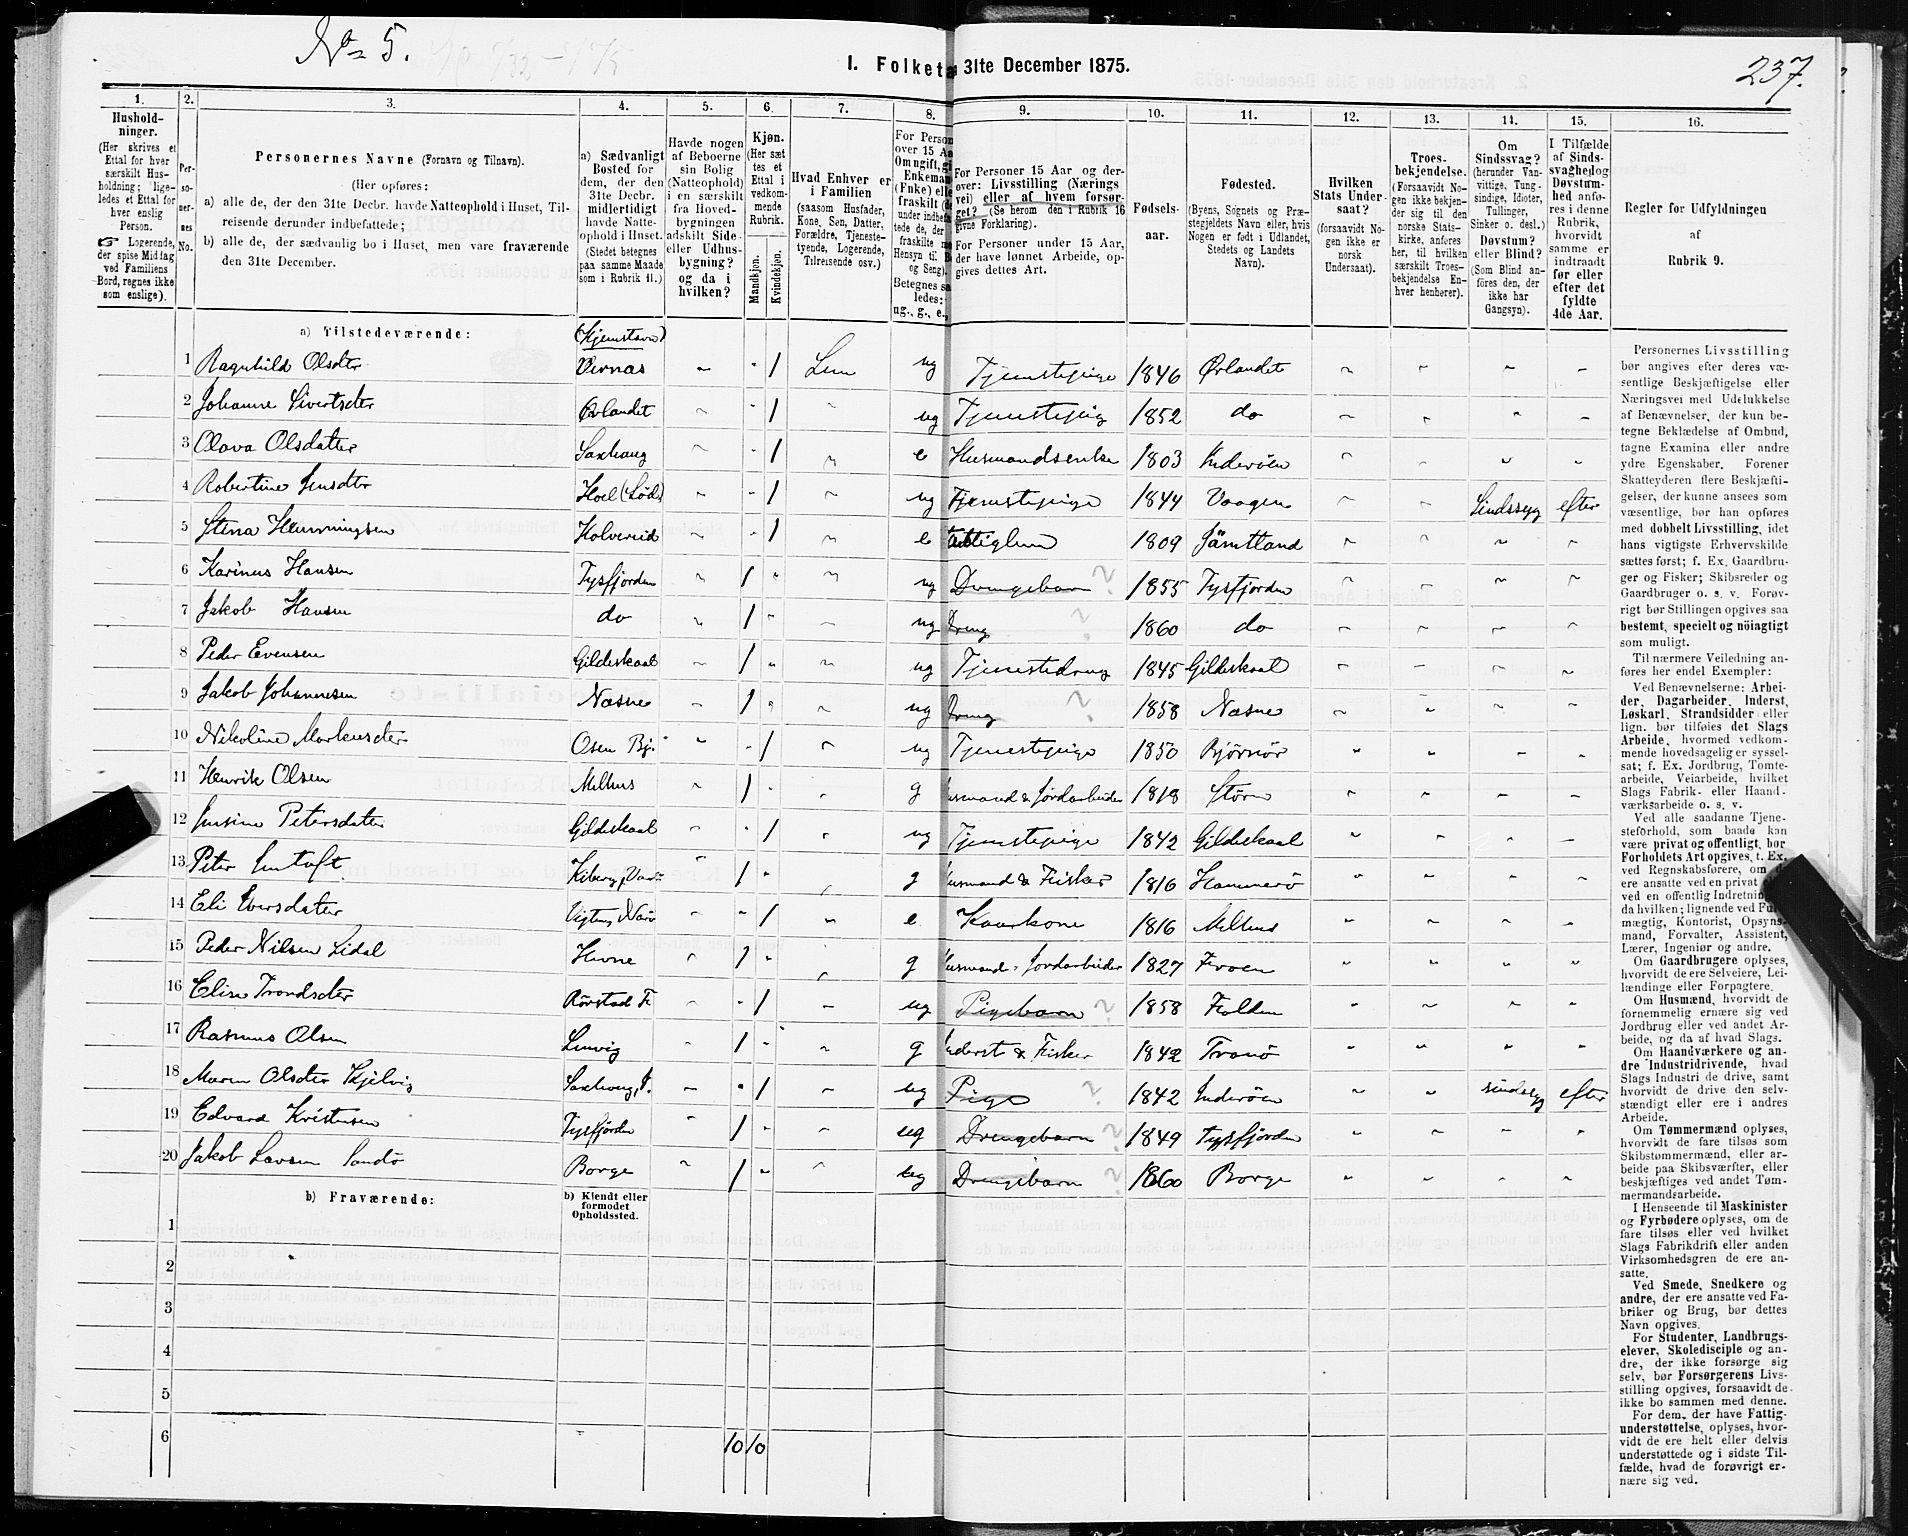 No 5.
I. Folketæ 31te December 1875.
237.
1. 2. 3. 4. 5. 6. 7. 8. 9. 10. 11. 12. 13. 14. 15. 16.
Hushold-
ninger.
(Her skrives et
Ettal for hver
særskilt Hus-
holdning; lige-
ledes et Ettal for
hver enslig
Person.
☞ Logerende,
der spise Middag
ved Familiens
Bord, regnes ikke
som enslige).
Per-
so-
ner-
nes
No.
Personernes Navne (Fornavn og Tilnavn).
(Her opføres:
a) alle de, der den 31te Decbr. havde Natteophold i Huset, Til-
reisende derunder indbefattede;
b) alle de, der sædvanlig bo i Huset, men vare fraværende
den 31te December.
a) Sædvanligt
Bosted for
dem, der den
31te Decbr.
midlertidigt
havde Natte-
ophold i Huset.
(Stedet betegnes
paa samme Maade
som i Rubrik 11.)
Havde nogen
af Beboerne
sin Bolig
(Natteophold)
i en særskilt
fra Hoved-
bygningen
adskilt Side-
eller Udhus-
bygning?
og da i
hvilken?
Kjøn.
(Her sæt
tes et
Ettal i
vedkom-
mende
Rubrik.
Mandkjøn.
Kvindekjøn.
Hvad Enhver er
i Familien
(saasom Husfader,
Kone, Søn, Datter,
Forældre, Tjeneste-
tyende, Logerende,
Tilreisende osv.)
For Person
over 15 Aa
Om ugift, gi
Enkeman
(Fnke) elle
fraskilt (de
under indbefa
tede de, der
fraskilte m
Hensyn til B
og Seng).
Betegnes sa
ledes:
ug., g., e.,
For Personer 15 Aar og der-
over: Livsstilling (Nærings
vei) eller af hvem forsør-
get? (Se herom den i Rubrik 16
givne Forklaring).
For Personer under 15 Aar,
der have lønnet Arbeide, op-
gives dettes Art.
Fødsels-
aar.
Fødested.
(Byens, Sognets og Præ-
stegjeldets Navn, eller, hvis
Nogen er født i Udlandet,
Stedets og Landets
Navn).
Hvilken
Stats Under-
saat?
(forsaavidt No-
gen ikke er
norsk
Undersaat).
Troes-
bekjendelse.
(Forsaavidt No-
gen ikke bekjen-
der sig til den
norske Stats-
kirke, anføres
her, til hvilken
særskilt Troes-
bekjendelse En-
hver henhører).
Om
Sindssvag?
(herunder Van-
vittige, Tung-
sindige, Idioter,
Tullinger,
Sinker o. desl.)
Døvstum?
eller Blind?
(Som Blind an-
føres den, der
ikke har
Gangsyn).
I Tilfælde
af Sinds-
svaghed og
Døvstum-
hed anfø-
res i denne
Rubrik,
hvorvidt
samme er
indtraadt
før eller
efter det
fyldte
4de Aar.
Regler for Udfyldningen
af
Rubrik 9.
a) Tilstedeværende: (Hjemstavn)
1 Ragnhild Olsdtr Vernas " " 1 Lem ug Tjenstepige 1846 Ørlandet " " " "
2 Johanne Sivertsdtr Ørlandet " 1 " ug Tjenstepig 1852 do " " " "
3 Olava Olsdatter Saxhaug " " 1 " e Husmandsenke 1803 Inderøen " " " "
4 Robertine Jensdtr Hoel (Løds) " " 1 " ug Tjenstepige 1844 Vaagen " " Sindssyg efter
5 Stena Henningsen Kolvereid " " 1 " e 1809 Jämtland " " " "
6 Karinus Hansen Tysfjorden " 1 " " ug Drengebarn ? 1855 Tysfjorden " " " "
7 Jakob Hansen do " 1 " " ug Dreng ? 1860 do " " " "
8 Peder Evensen Gildeskaal " 1 " " ug Tjenestedreng 1845 Gildeskaal " " " "
9 Jakob Johannesen Næsne " 1 " " ug Dreng ? 1858 Næsne " " " "
10 Nikoline Markusdtr Osen Bj. " " 1 " ug Tjenstepige 1850 Bjørnør " " " "
11 Henrik Olsen Melhus " 1 " " g usmand & Jordarbeider 1818 Støren " " " "
12 Jensine Petersdatter Gildeskaal " " 1 " ug Tjenstepige 1842 Gildeskaal " " " "
13 Peter Jentoft Kiberg, Var: " 1 " " g usmand & Fisker 1816 Hammerø " " " "
14 Eli Iversdatter Vigten, Nærø " " 1 " e Kaarkone 1816 Melhus " " " "
15 Peder Nilsen Lidal Hevne " 1 " " g usmand, Jordarbeider 1827 Froen " " " "
16 Elise Trondsdtr Rørstad F. " " 1 " ug Pigebarn ? 1858 Folden " " " "
17 Rasmus Olsen Lenvig " 1 " " g nderst & Fisker 1842 Tranø " " " "
18 Maren Olsdtr Hjelvig Saxhoug, I. " " 1 " ug Pige ? 1842 Inderøen " " sindssyg efter
19 Edvard Kristensen Tysfjorden " 1 " " ug Drengebarn ? 1849 Tysfjorden " " " "
20 Jakob Larsen Sandø Borge " 1 " " ug Drengebarn ? 1860 Borge " " " "
b) Fraværende:
b) Kjendt eller
formodet
Opholdssted.
1
2
3
4
5
6
10 10
Personernes Livsstilling
bør angives efter deres væ-
sentlige Beskjæftigelse eller
Næringsvei med Udelukkelse
af Benævnelser, der kun be-
tegne Beklædelse af Ombud,
tagne Examina eller andre
ydre Egenskaber. Forener
Skatteyderen flere Beskjæfti-
gelser, der kunne ansees som
væsentlige, bør han opføres
med dobbelt Livsstilling, idet
hans vigtigste Erhvervskilde
sættes først; f. Ex. Gaardbru-
ger og Fisker; Skibsreder og
Gaardbruger o. s. v. Forøv-
rigt bør Stillingen opgives saa
bestemt, specielt og nöiagtigt
som muligt.
Til nærmere Veiledning an-
føres her endel Exempler:
Ved Benævnelserne: Arbei-
der, Dagarbeider, Inderst,
Løskarl, Strandsidder eller
lign. bør tilføies det Slags
Arbeide, hvormed vedkom-
mende hovedsagelig er syssel-
sat; f. Ex. Jordbrug, Tomte-
arbeide, Veiarbeide, hvilket
Slags Fabrik- eller Haand-
værksarbeide o. s. v.
Ved alle saadanne Tjene-
steforhold, som baade kan
være privat og offentligt, bør
Forholdets Art opgives, t. Ex.
ved Regnskabsførere, om de
ere ansatte ved en privat el
ved en offentlig Indretning,
da hvilken; lignende ved Ful
mægtig, Kontorist, Opsyns-
mand, Forvalter, Assistent,
Lærer, Ingeniør og andre.
Om Gaardbrugere oplyses,
hvorvidt de ere Selveiere, Lei-
lændinge eller Forpagtere.
Om Husmænd, hvorvidt de
fornemmelig ernære sig ved
Jordbrug eller ved andet Ar-
beide, og da af hvad Slags.
Om Haandværkere og an-
dre Industridrivende, hvad
Slags Industri de drive, samt
hvorvidt de drive den selv-
stændigt eller ere i andres
Arbeide.
Om Tømmermænd oplyses,
hvorvidt de fare tilsøs som
Skibstømmermænd, eller ar-
beide paa Skibsværfter, eller
beskjæftiges ved andet Tøm-
mermandsarbeide.
I Henseende til Maskinister
og Fyrbødere oplyses, om de
fare tilsøs eller ved hvilket
Slags Fabrikdrift eller anden
Virksomhedsgren de ere an-
satte.
Ved Smede, Snedkere og
andre, der ere ansatte ved Fa-
briker og Brug, bør dettes
Navn opgives.
For Studenter, Landbrugs-
elever, Skoledisciple og an-
dre, der ikke forsørge sig
selv, bør Forsørgerens Livs-
stilling opgives, forsaavidt de
ikke bo sammen med denne.
For dem, der have Fattig-
understøttelse, oplyses, hvor-
vidt de ere helt eller delvis
understøttede og i sidste Til-
fælde, hvad de forøvrigt er-
nære sig ved.